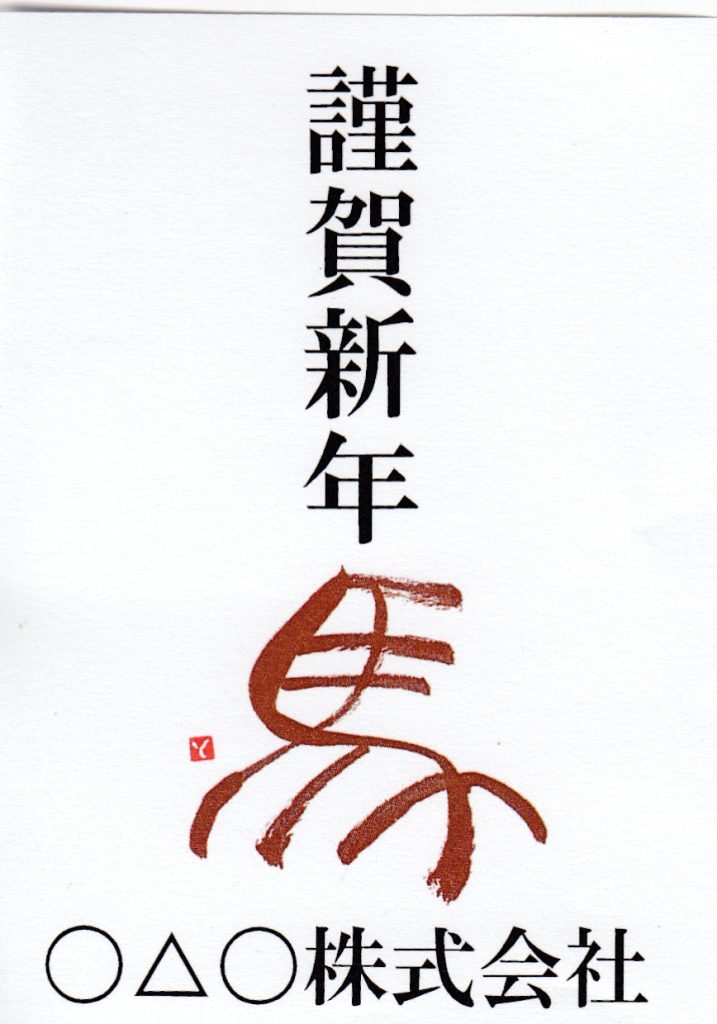 謹賀新年
馬
○△○株式会社